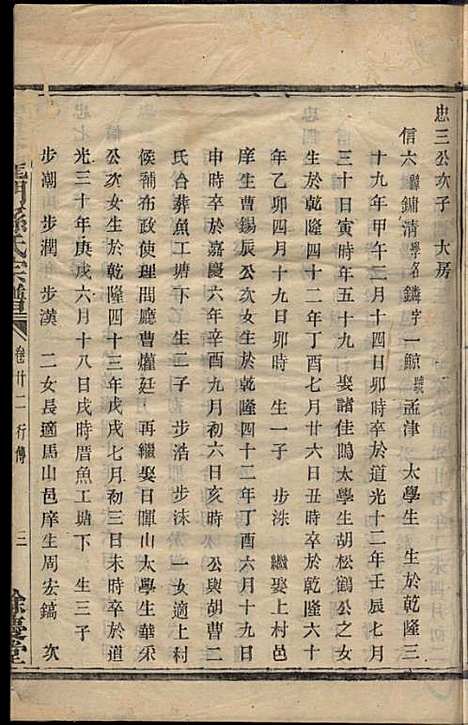 忠三公次子 大房
信六 諱鏞清 學名鏻 字一鯨 號孟津 太學生 生於乾隆三
十九年甲午三月十四日卯時卒於道光十二年壬辰七月
三十日寅時年五十九 娶諸佳鳴太學生胡松鶴公之女
生於乾隆四十二年丁酉七月廿六日丑時卒於乾隆六十
年乙卯四月十九日卯時 生一子 步洙 繼娶上村邑
庠生曹錫辰公次女生於乾隆四十二年丁酉六月十九日
申時卒於嘉慶六年辛酉九月初六日亥時 公與胡曹二
氏合葬魚工塘下 生二子 步浩 步洙 一女適上村
候補布政使理問廳曹爟廷 再繼娶日暉山太學生華釆
公次女生於乾隆四十三年戊戌七月初三日未時卒於道
光三十年庚戌六月十八日戌時厝魚工塘下 生三子
步潮 步潤 步漢 二女長適馬山邑庠生周宏鎬 次
孫氏宗譜 卷廿二 行傳 三 餘慶堂